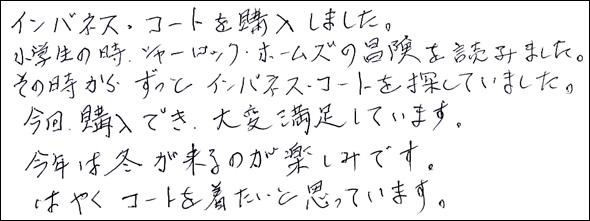 インバネス・コートを購入しました。
小学生の時、シャーロック・ホームズの冒険を読みました。
その時から、ずっと インバネス・コートを探していました。
今回、購入でき、大変満足しています。
今年は冬が来るのが楽しみです。
はやく コートを着たいと思っています。